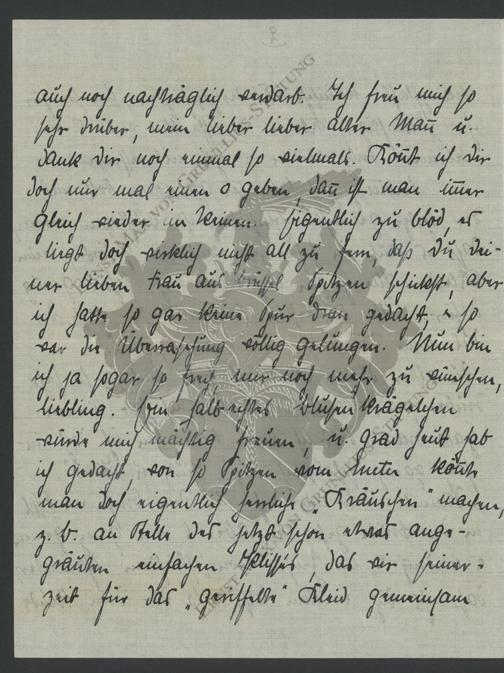 auch noch nachträglich verdarb. Ich freu mich so
sehr drüber, mein lieber lieber alter Mañ u.
dank dir noch einmal so vielmals. Könnt ich dir
doch nur mal einen o geben, dañ ist man im̄er
gleich wieder im Reinen. Eigentlich zu blöd, es
liegt doch wirklich nicht all zu fern, daß du dei-
ner lieben Frau aus Brüssel Spitzen schickst, aber
ich hatte so gar keine Spur dran gedacht, & so
war die Überraschung völlig gelungen. Nun bin
ich ja sogar so frech, mir noch mehr zu wünschen,
liebling. So ein halbrechtes blusenkrägelchen
würde mich mächtig freuen, u. grad heut hab
ich gedacht, von so Spitzen vom Meter köñte
man doch eigentlich herrliche „Kräuschen" machen,
z. b. an Stelle des jetzt schon etwas ange-
gräuten einfachen Plissés, das wir seiner-
zeit für das „geriffelte" Kleid gemeinsam